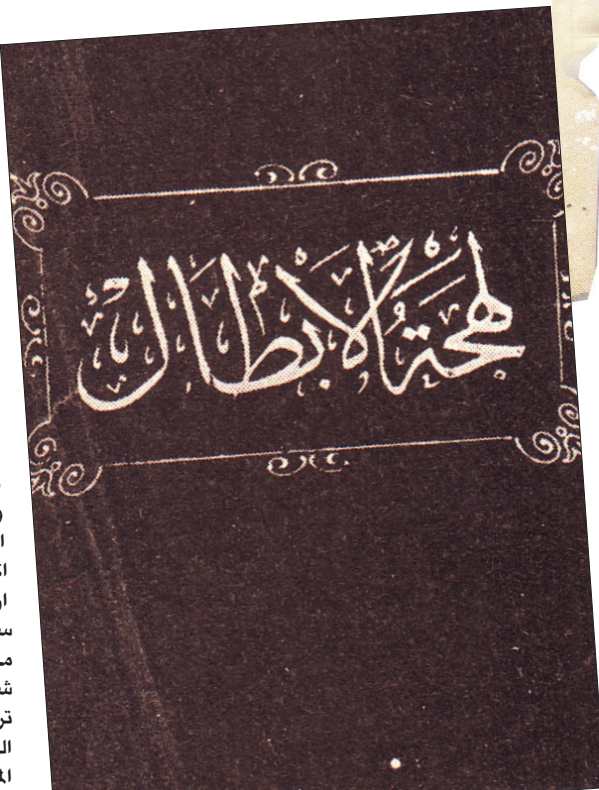 لهجة الابطال